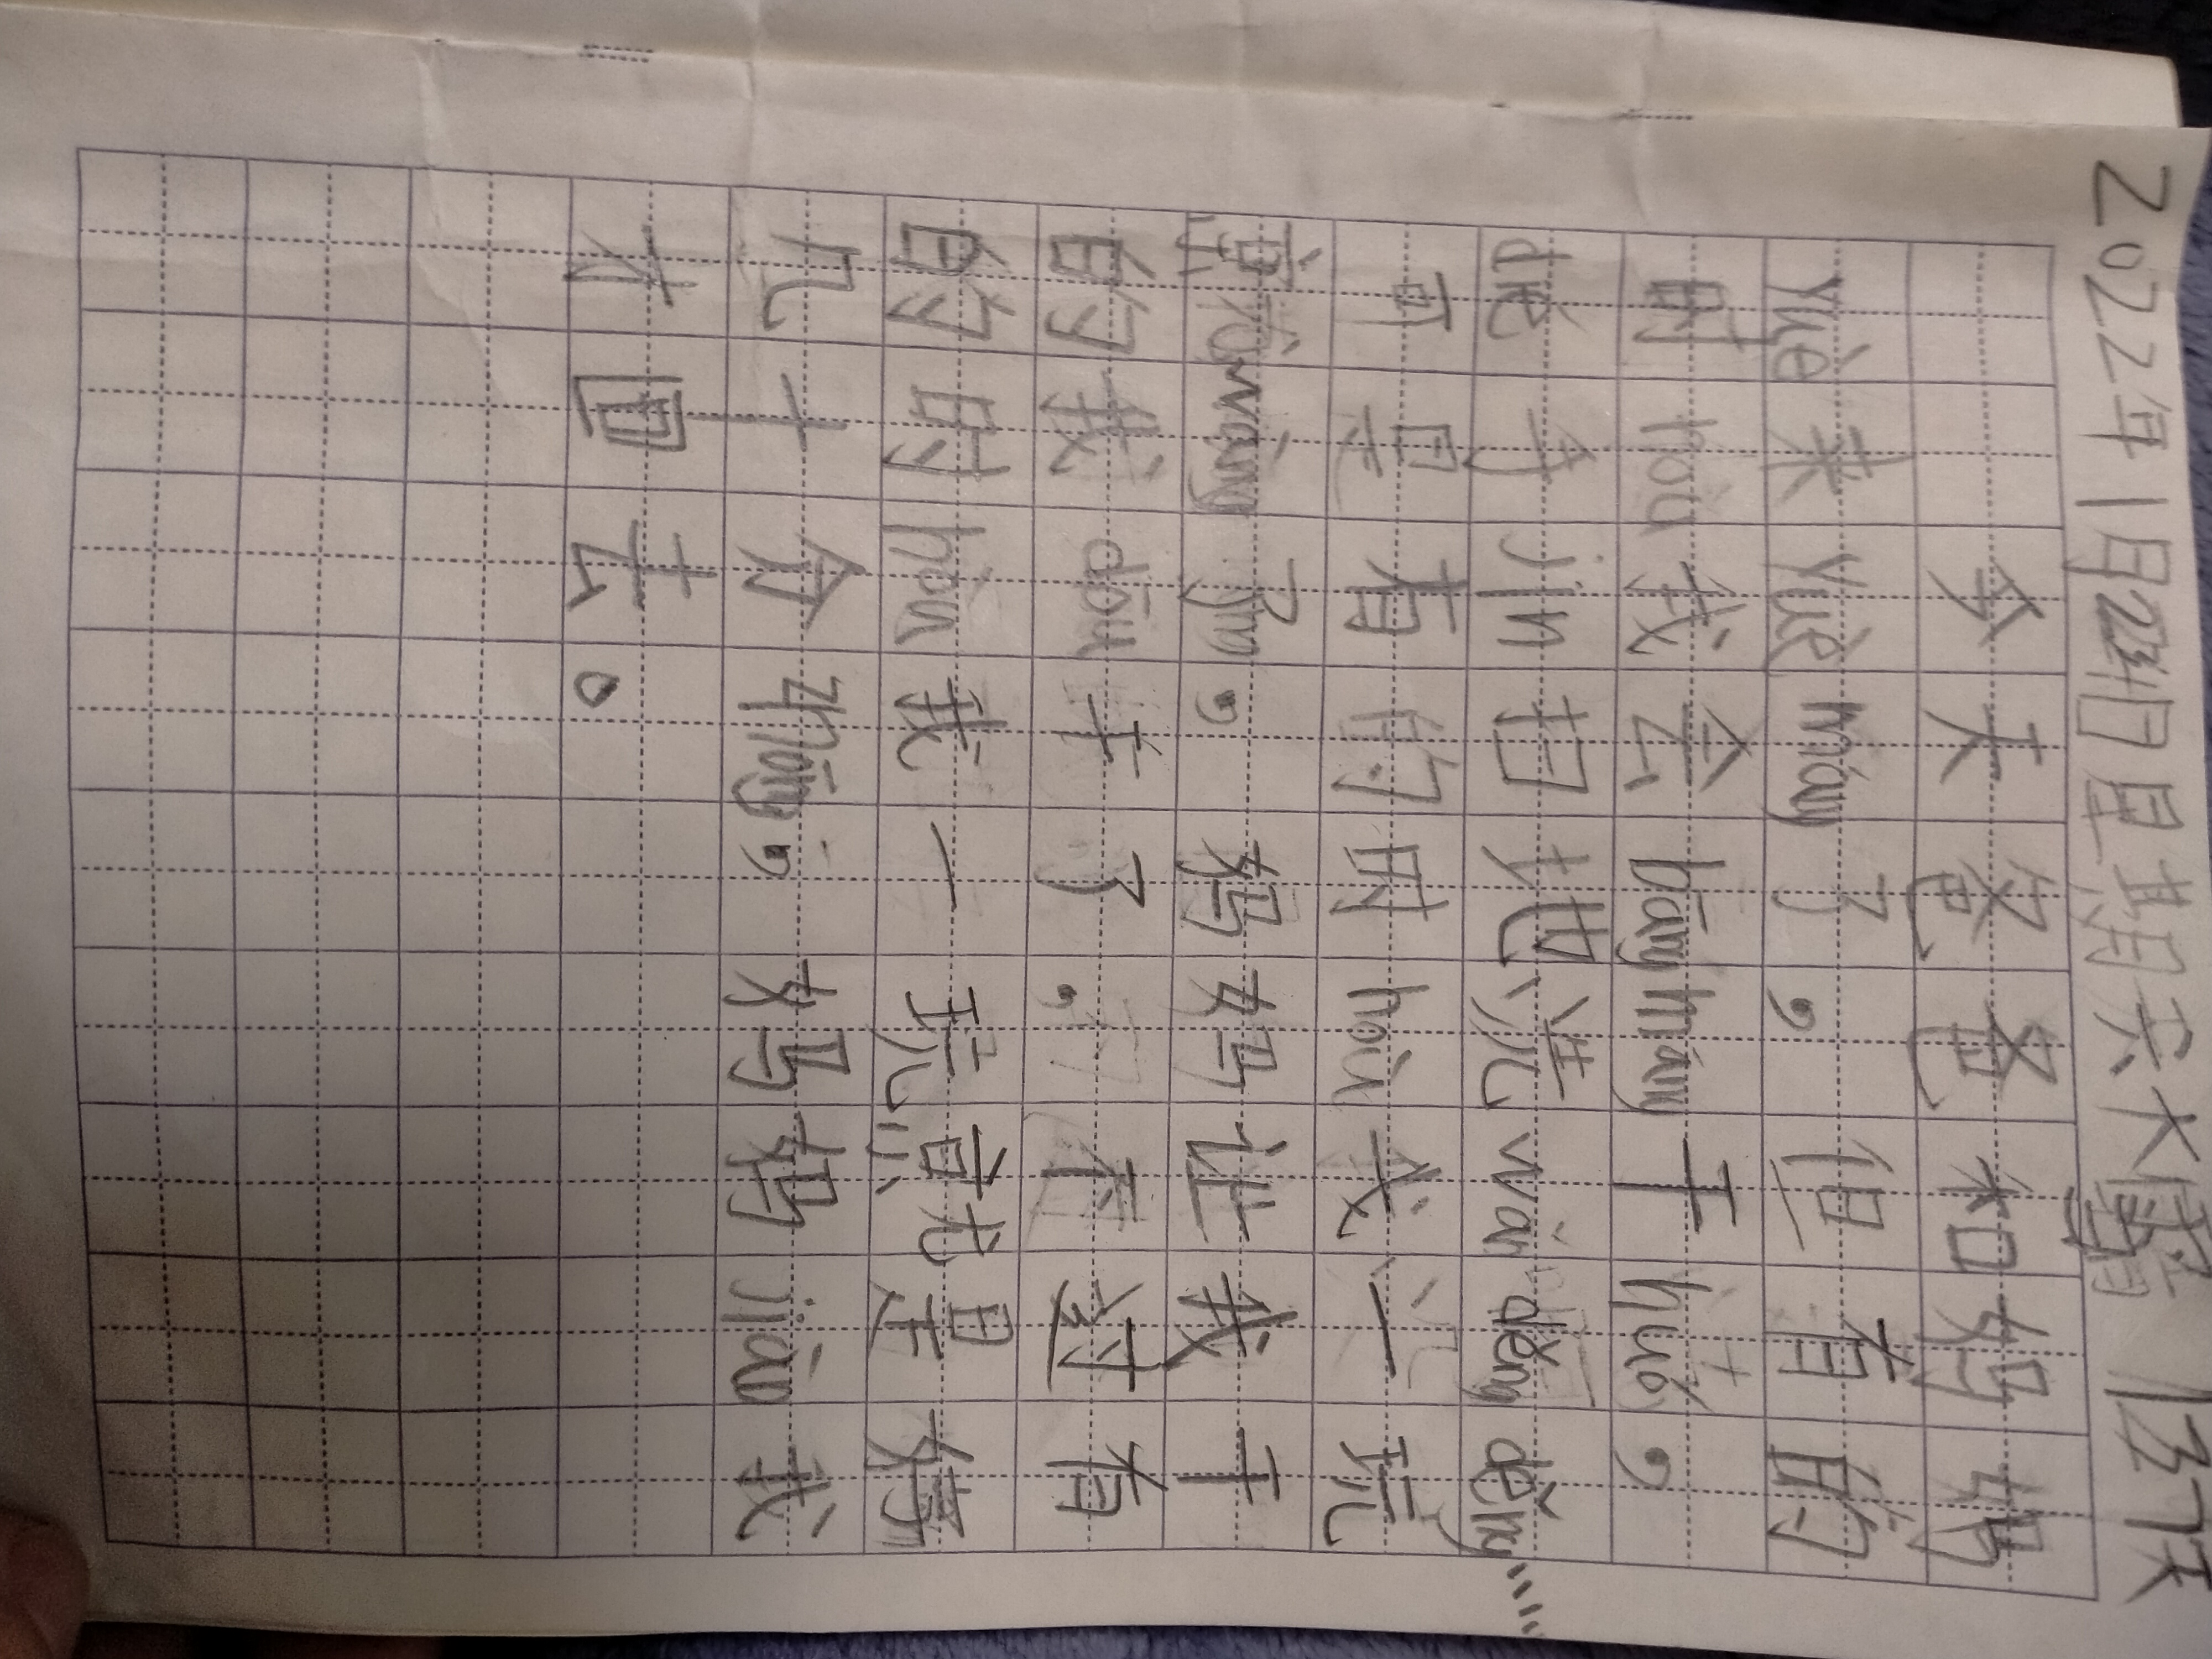 2022年1月23日星期天 137天
今天爸爸和妈妈
yuè来yuè máng了，但有的
时hou我会bāng máng干huó，
de jin扫地、洗wǎn děng děng……
可是有的时hou我一玩
就wàng了，妈妈让我干
的我dōu干了。不过有
的时hou我一玩就是好
几十分zhōng，妈妈jiào我
才回去。